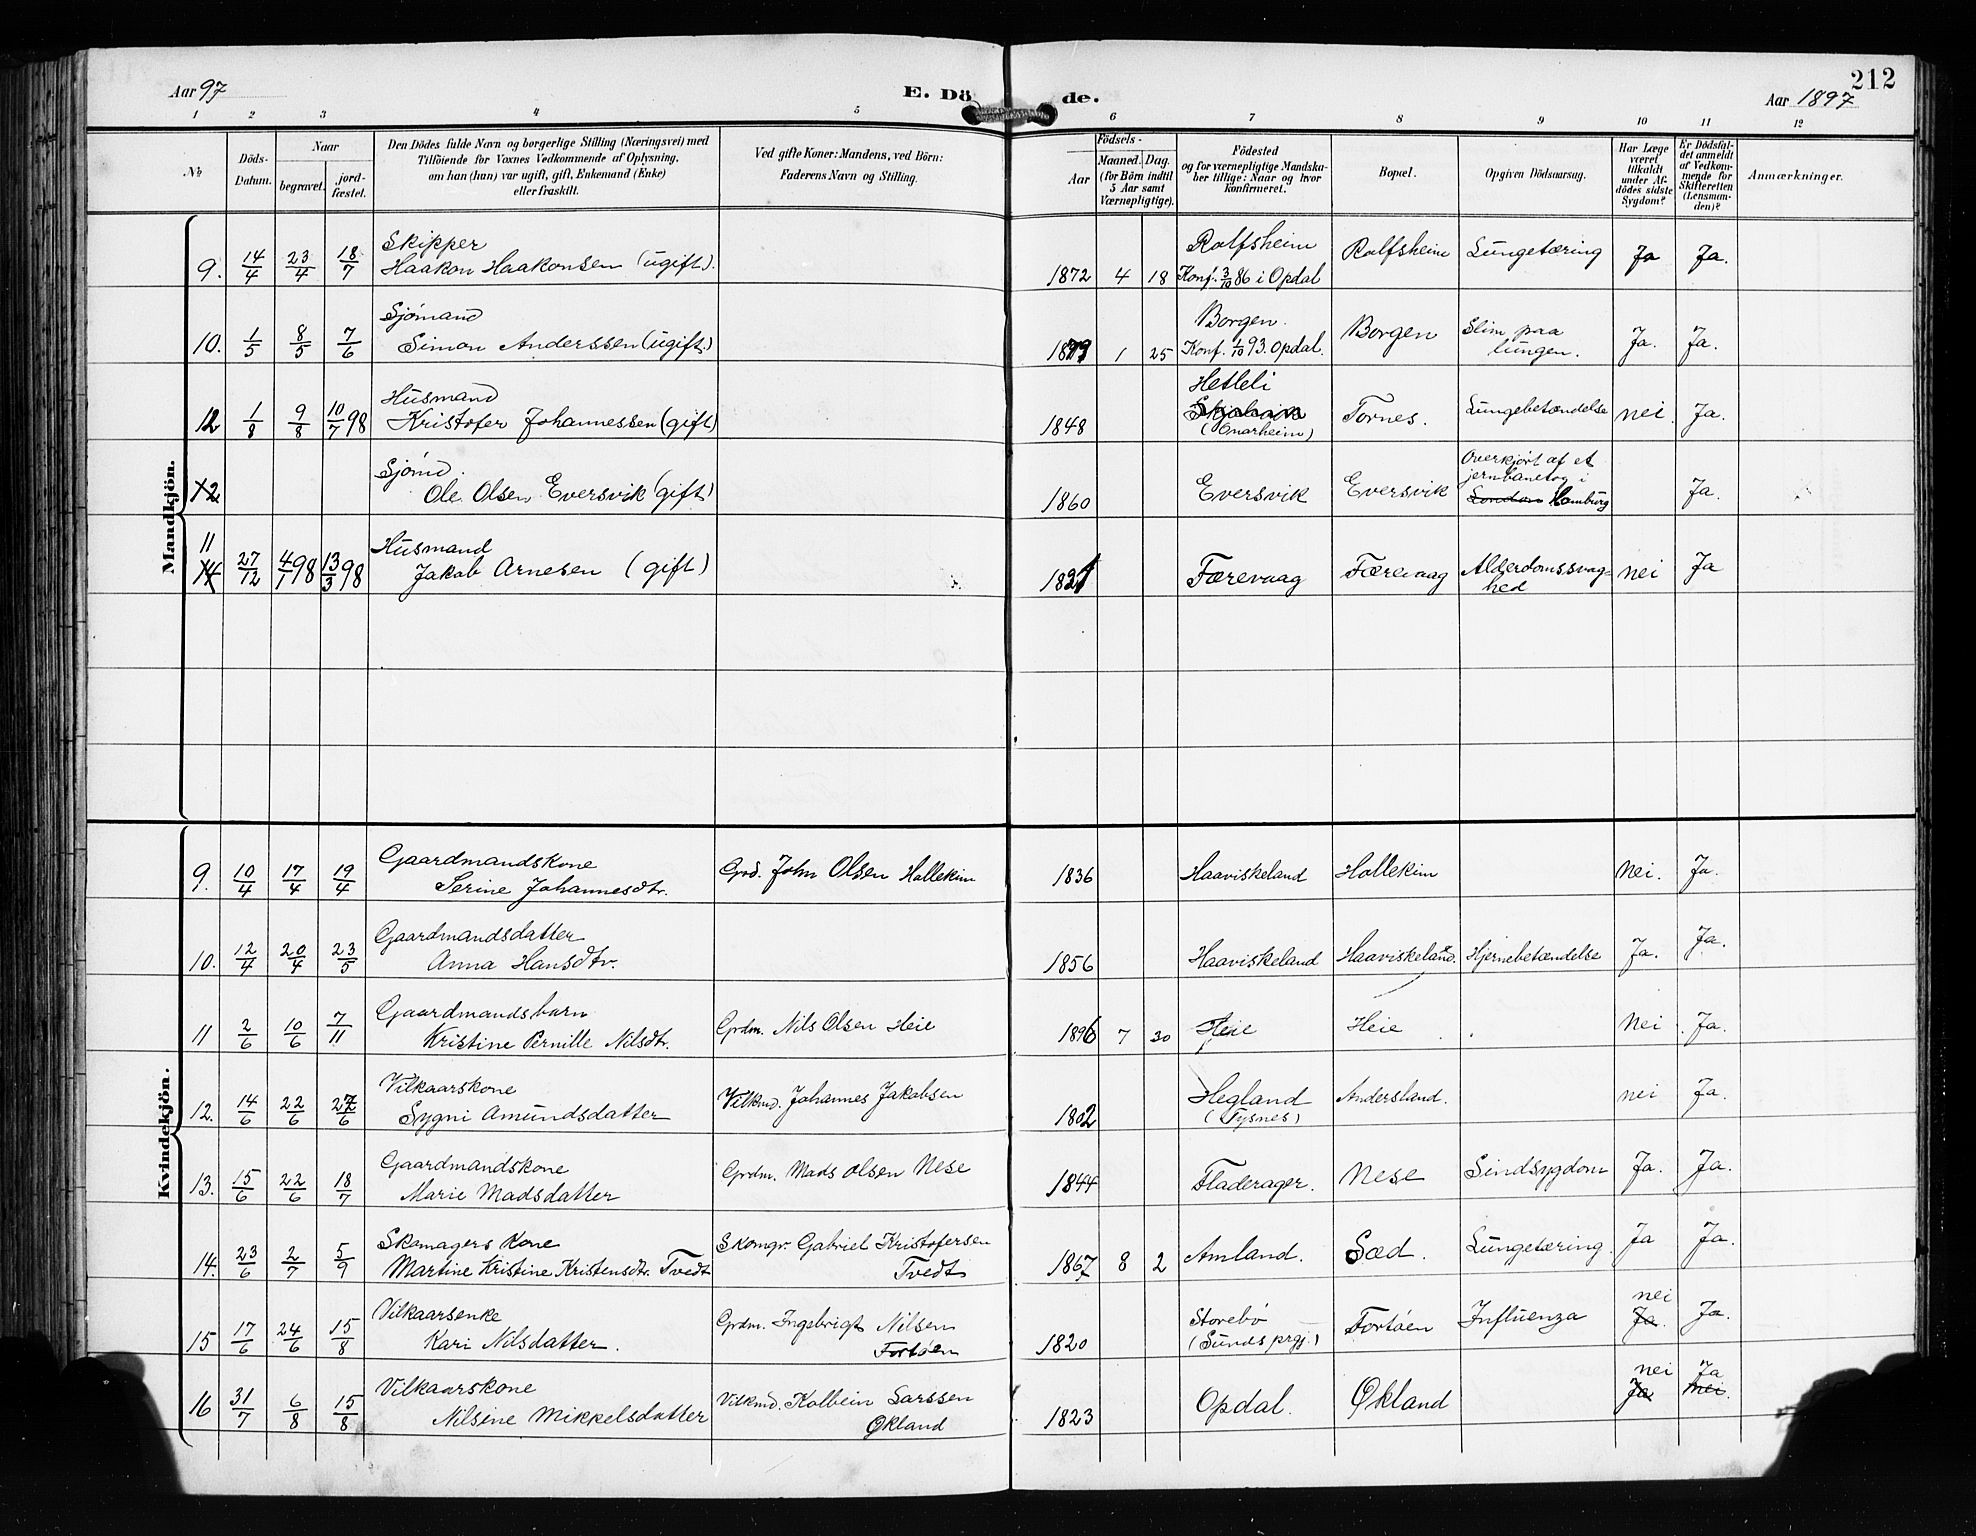 Aar 97
E. Dö de.
212
Aar 1897
1 2 3 4 5 6 7 8 9 10 11 12
No
Döds-
Datum.
Naar
begravet.
jord-
fæstet.
Den Dödes fulde Navn og borgerlige Stilling (Næringsvei) med
Tilföiende for Voxnes Vedkommende af Oplysning,
om han (hun) var ugift, gift, Enkemand (Enke)
eller fraskilt.
Ved gifte Koner: Mandens, ved Börn:
Faderens Navn og Stilling.
Födsels-
Aar
Maaned. Dag.
(for Börn indtil
5 Aar samt
Værnepligtige).
Födested
og for værnepligtige Mandska-
ber tillige: Naar og hvor
konfirmeret.
Bopæl.
Opgiven Dödsaarsag.
Har Læge
været
tilkaldt
under Af-
dödes sidste
Sygdom?
Er Dödsfal-
det anmeldt
af Vedkom-
mende for
Skifteretten
(Lensman-
den)?
Anmærkninger.
Mandkjön.
Skipper Rolfsheim
9. 14/4 23/4 18/7 Haakon Haakonsen (ugift). 1872 4 18 Konf. 3/10 86 i Opdal Rolfsheim Lungetæring Ja Ja.
Sjömand Borgen. Slim paa
10. 1/5 8/5 7/6 Simon Anderssen (ugift.) 1879 1 25 Konf. 1/10 93. Opdal. Borgen lungen. Ja. Ja.
Husmand Hetleli
12 1/8 9/8 10/7 98 Kristofer Johannessen (gift) 1848 (Onarheim) Tornes. Lungebetændelse nei Ja.
Sjömd. Overkjört af et
jernbanetog i
12 Ole Olsen Eversvik (gift) 1860 Eversvik Eversvik London Hamburg Ja.
11 Husmand
14 27/12 4/1 98 13/3 98 Jakob Arnesen (gift) 1821 Færevaag Færevaag Alderdomssvag- nei Ja
hed
Kvindekjön.
Gaardmandskone
9. 10/4 17/4 19/4 Serine Johannesdtr. Grd. John Olsen Hollekim 1836 Haaviskeland Hollekim nei. Ja.
Gaardmandsdatter
10. 12/4 20/4 23/5 Anna Hansdtr. 1856 Haaviskeland Haaviskeland. Hjernebetændelse Ja. Ja.
Gaardmandsbarn
11 2/6 10/6 7/11 Kristine Pernille Nilsdtr. Grdm. Nils Olsen Heie 1896 7 30 Heie Heie Nei Ja.
Vilkaarskone
12. 14/6 22/6 27/6 Sygni Amundsdatter Vilkmd. Johannes Jakobsen 1802 Hegland Andersland. nei Ja.
(Tysnes)
Gaardmandskone
13. 15/6 22/6 18/7 Marie Madsdatter Grdm. Mads Olsen Nese 1844 Fladerager. Nese Sindsygdom Ja. Ja.
Skomagers kone Skomgr. Gabriel Kristofersen
14. 23/6 2/7 5/9 Martine Kristine Kristensdtr. Tvedt Tvedt 1867 8 2 Amland. Sæd. Lungetæring. Ja Ja.
Vilkaarsenke Grdm. Ingebrigt Nilsen Storebø nei
15 17/6 24/6 15/8 Kari Nilsdatter. Fortöen 1820 (Sunds prgj.) Fortöen Influenza Ja. Ja.
Vilkaarskone Vilkmd. Kolbein Larssen nei Ja
16 31/7 6/8 15/8 Nilsine Mikkelsdatter Økland 1823 Opdal. Økland Ja nei.